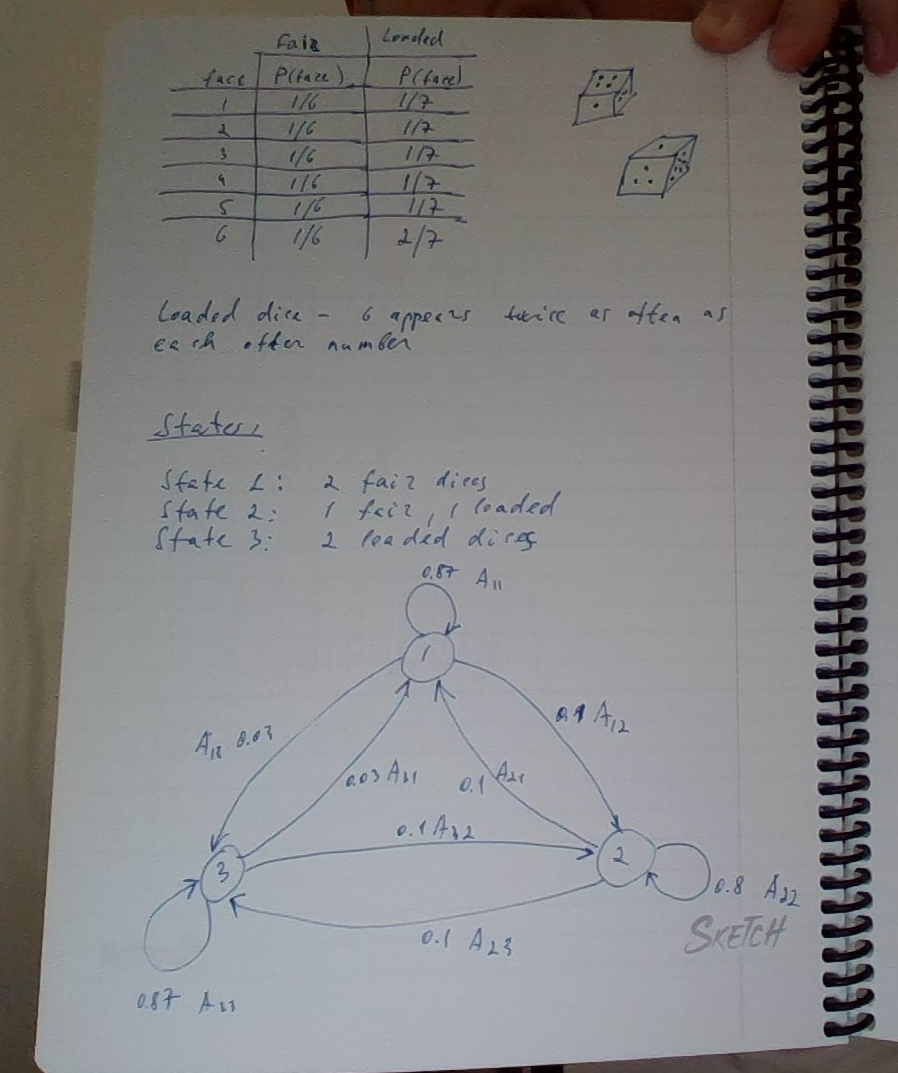 Fair Loaded
face P(face) P(face)
1 1/6 1/7
2 1/6 1/7
3 1/6 1/7
4 1/6 1/7
5 1/6 1/7
6 1/6 2/7
Loaded dice - 6 appears twice as often as
each other number
States:
State 1: 2 fair dices
State 2: 1 fair, 1 loaded
State 3: 2 loaded dices
0.87 A11
1
A13 0.03
0.1 A12
0.03 A31
0.1 A21
0.1 A32
3
2
0.8 A22
SKETCH
0.1 A23
0.87 A33